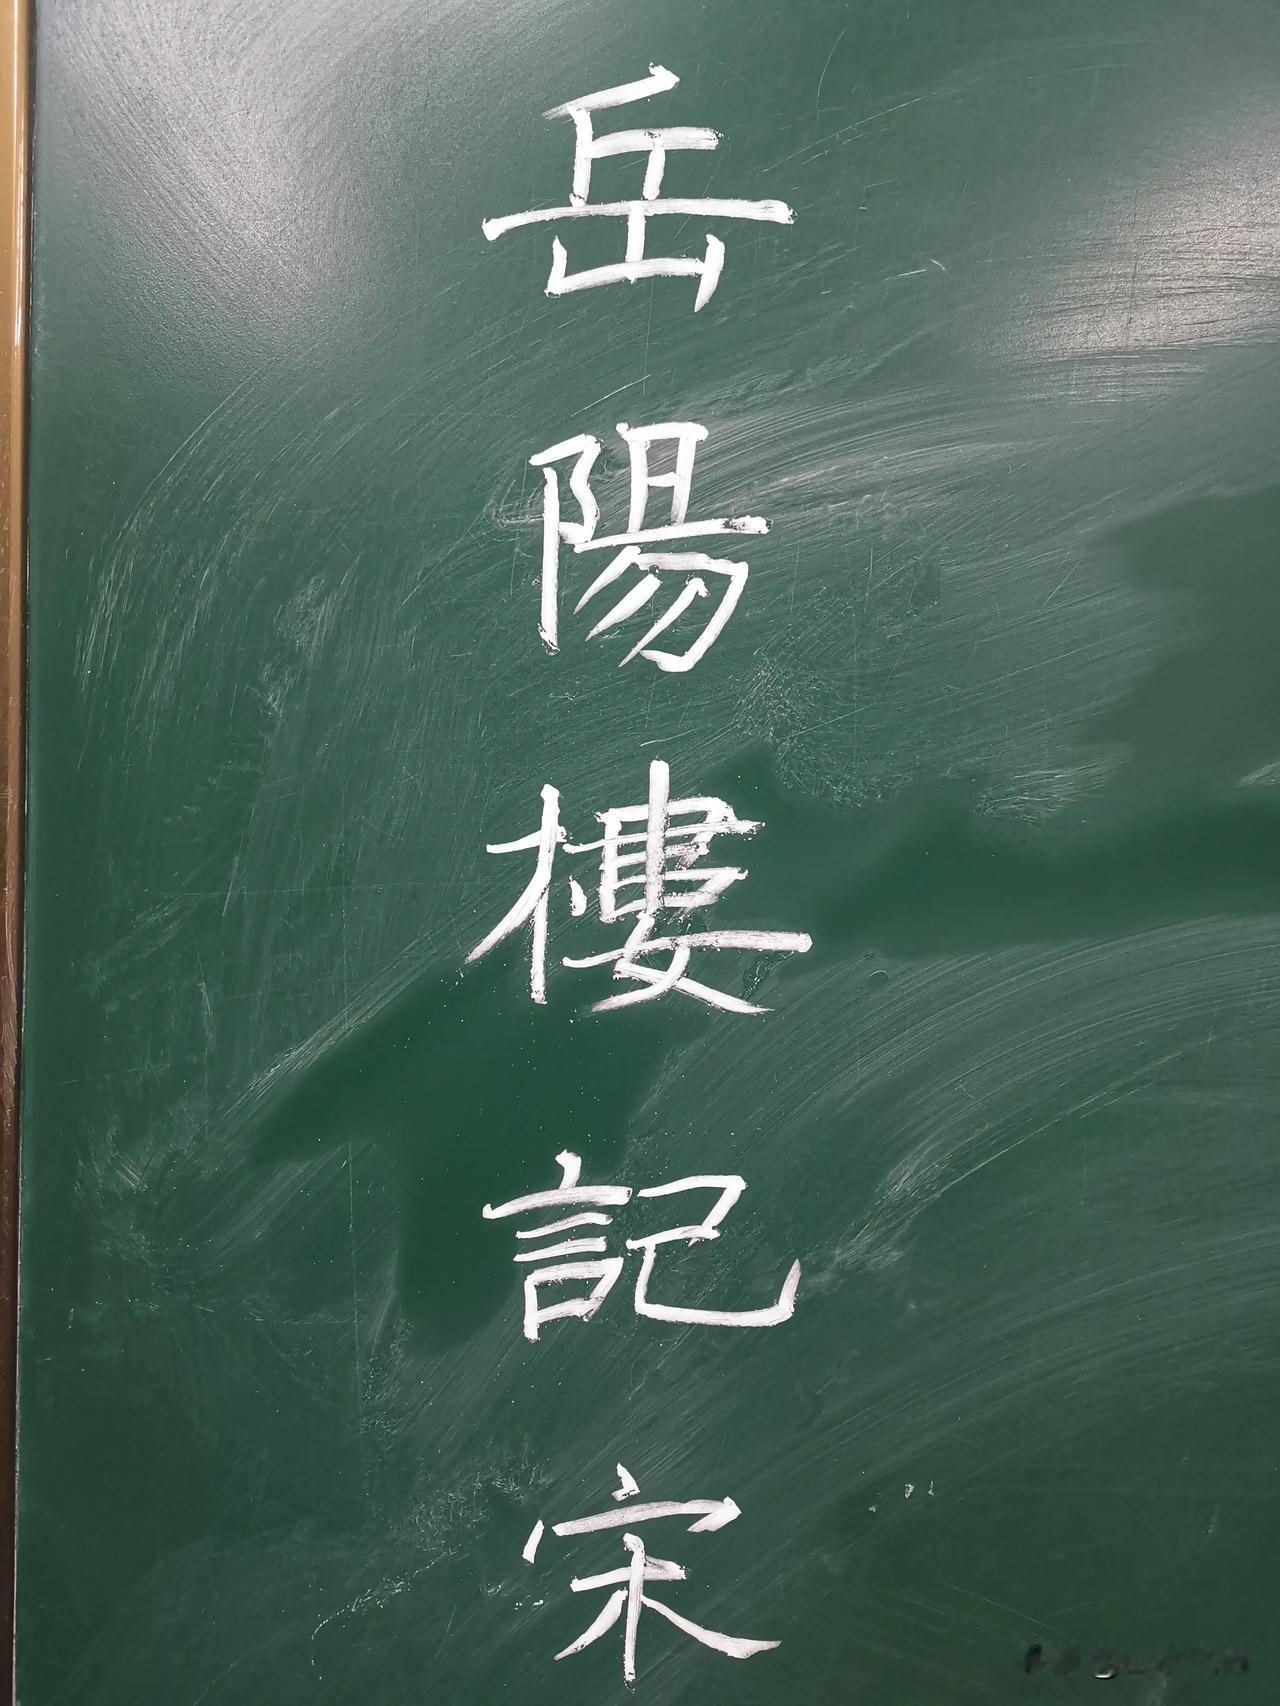 岳陽樓記宋